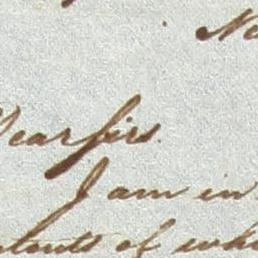 Ne
Dear Sirs.
I am in
ntents of whi